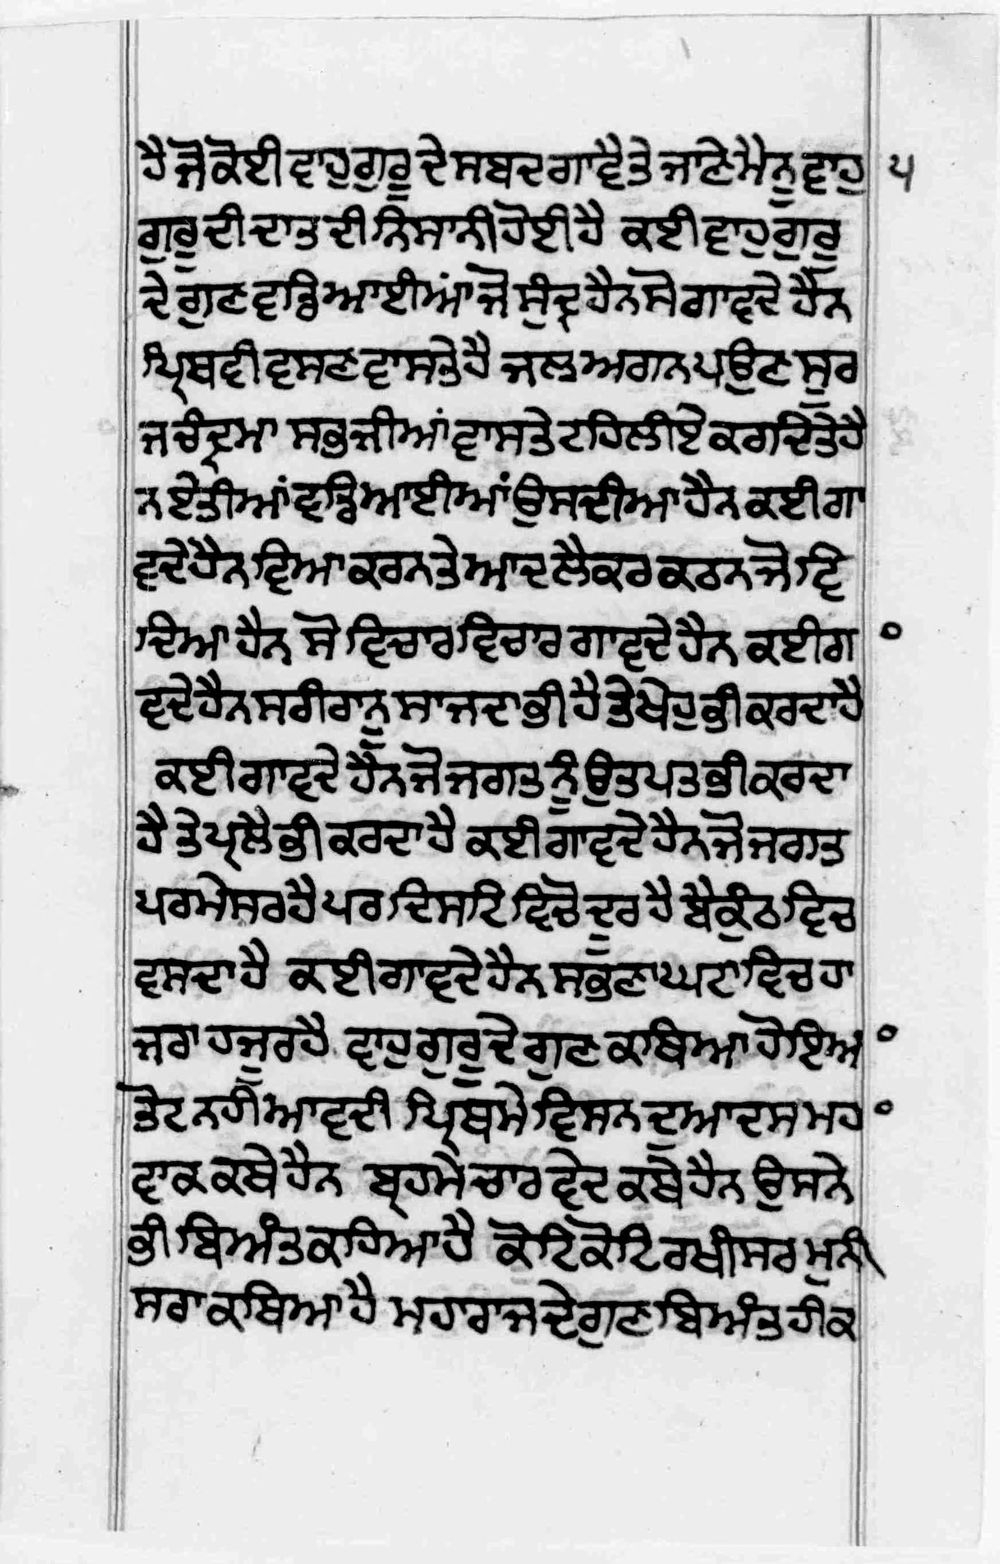 ਹੈ ਜੋ ਕੋਈ ਵਾਹੁਗੁਰੂ ਦੇ ਸਬਦ ਗਾਵੈ ਤੇ ਜਾਣੇ ਮੈਨੂ ਵਾਹੁ ੫
ਗੁਰੂ ਦੀ ਦਾਤ ਦੀ ਨਿਸਾਨੀ ਹੋਈ ਹੈ ਕਈ ਵਾਹੁਗੁਰੂ
ਦੇ ਗੁਣ ਵਡਿਆਈਆਂ ਜੋ ਸੁੰਦ੍ਰ ਹੈਨ ਸੋ ਗਾਵਦੇ ਹੈਨ
ਪ੍ਰਿਥਵੀ ਵਸਣ ਵਾਸਤੇ ਹੈ ਜਲ ਅਗਨ ਪਉਣ ਸੂਰ
ਜ ਚੰਦ੍ਰਮਾ ਸਭ ਜੀਆਂ ਵਾਸਤੇ ਟਹਿਲੀਏ ਕਰ ਦਿਤੇ ਹੈ
ਨ ਏਤੀਆਂ ਵਡਿਆਈਆਂ ਉਸਦੀਆ ਹੈਨ ਕਈ ਗਾ
ਵਦੇ ਹੈਨ ਵਿਆਕਰਨ ਤੇ ਆਦ ਲੈਕਰ ਕਠਨ ਜੋ ਵਿ
ਦਿਆ ਹੈਨ ਸੋ ਵਿਚਾਰ ਵਿਚਾਰ ਗਾਵਦੇ ਹੈਨ ਕਈ ਗ ੦
ਵਦੇ ਹੈਨ ਸਰੀਰਾ ਨੂ ਸਾਜਦਾ ਭੀ ਹੈ ਤੇ ਖੇਹੁ ਭੀ ਕਰਦਾ ਹੈ
ਕਈ ਗਾਵਦੇ ਹੈਨ ਜੋ ਜਗਤ ਨੂੰ ਉਤਪਤ ਭੀ ਕਰਦਾ
ਹੈ ਤੇ ਪ੍ਰਲੈ ਭੀ ਕਰਦਾ ਹੈ ਕਈ ਗਾਵਦੇ ਹੈਨ ਜੋ ਜਗਤ
ਪਰਮੇਸਰ ਹੈ ਪਰ ਦਿਸਟਿ ਵਿਚੋ ਦੂਰ ਹੈ ਬੈਕੁੰਠ ਵਿਚ
ਵਸਦਾ ਹੈ ਕਈ ਗਾਵਦੇ ਹੈਨ ਸਭਣਾ ਘਟਾ ਵਿਚ ਹਾ
ਜਰਾ ਹਜੂਰ ਹੈ ਵਾਹੁਗੁਰੂ ਦੇ ਗੁਣ ਕਥਿਆ ਹੋਇਅ ੦
ਤੋਟ ਨਹੀ ਆਵਦੀ ਪ੍ਰਿਥਮੇ ਵਿਸਨ ਦੁਆਦਸ ਮਹ ੦
ਵਾਕ ਕਥੇ ਹੈਨ ਬ੍ਰਹਮੇ ਚਾਰ ਵੇਦ ਕਥੇ ਹੈਨ ਉਸਨੇ
ਭੀ ਬਿਅੰਤ ਕਹਿਆ ਹੈ ਕੋਟਿ ਕੋਟਿ ਰਖੀਸਰ ਮੁਨੀ
ਸਰਾ ਕਥਿਆ ਹੈ ਮਹਾਰਾਜ ਦੇ ਗੁਣ ਬਿਅੰਤ ਹੀ ਕ